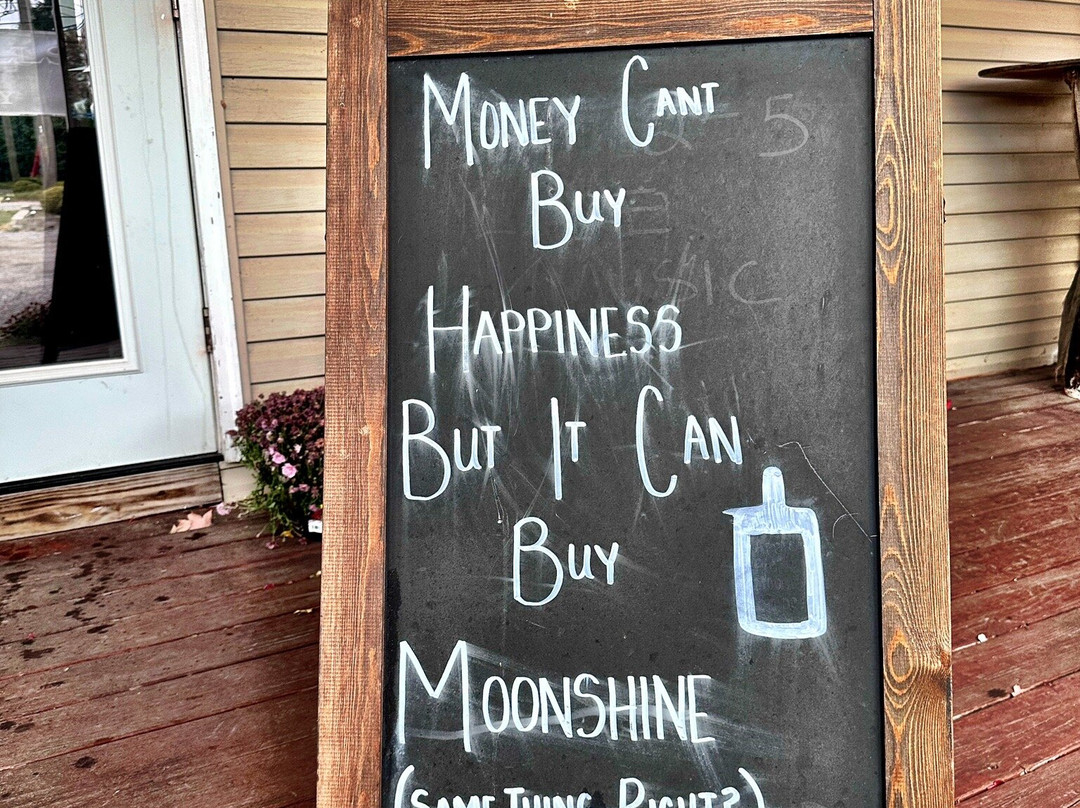 Money Cant
5
Buy
MUSIC
Happiness
But It Can
Buy
Moonshine
(Same Thing Right?)